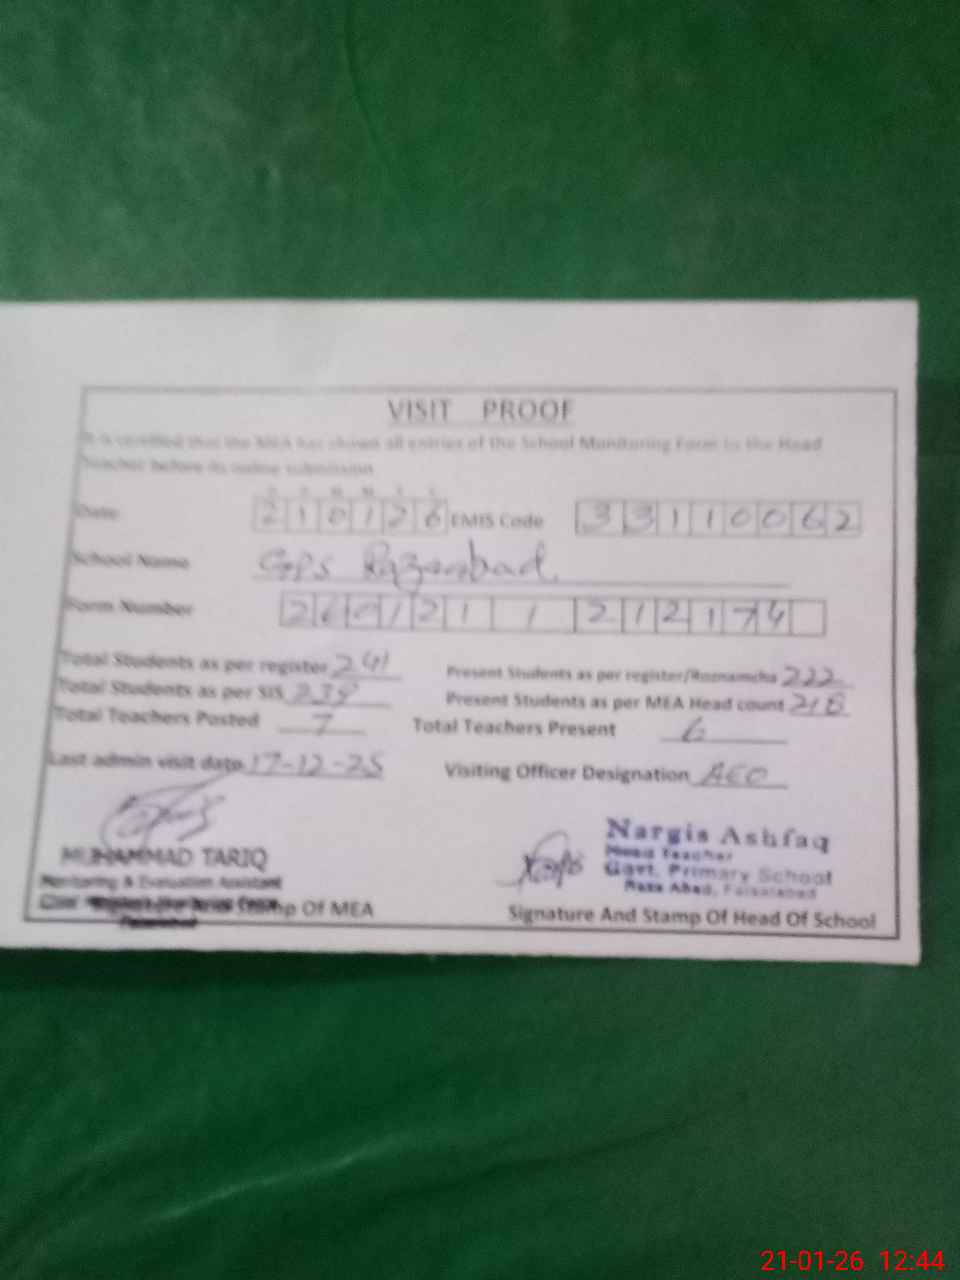 VISIT PROOF
It is certified that the MEA has shown all entries of the School Monitoring Form to the Head
Teacher before its online submission
Date 210126 EMIS Code 33110062
School Name GPS Razaabad
Form Number 2601211 1 212174
Total Students as per register 241 Present Students as per register/Roznamcha 222
Total Students as per SIS 239 Present Students as per MEA Head count 218
Total Teachers Posted 7 Total Teachers Present 6
Last admin visit date 17-12-25 Visiting Officer Designation AEO
MUHAMMAD TARIQ
Monitoring & Evaluation Assistant
Stamp Of MEA
Nargis Ashfaq
Head Teacher
Govt. Primary School
Raza Abad, Faisalabad
Signature And Stamp Of Head Of School
21-01-26 12:44